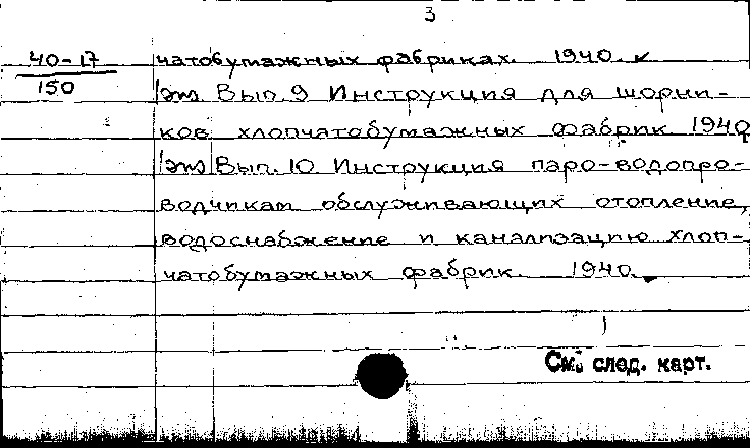 3
40-17 чатобумажных фабриках. 1940.
150 Вып. 9 Инструкция для шорни-
ков хлопчатобумажных фабрик 1940
Вып. 10. Инструкция паро-водопро-
водчикам обслуживающих отопление,
водоснабжение и канализацию хлоп-
чатобумажных фабрик. 1940.
См. след. карт.